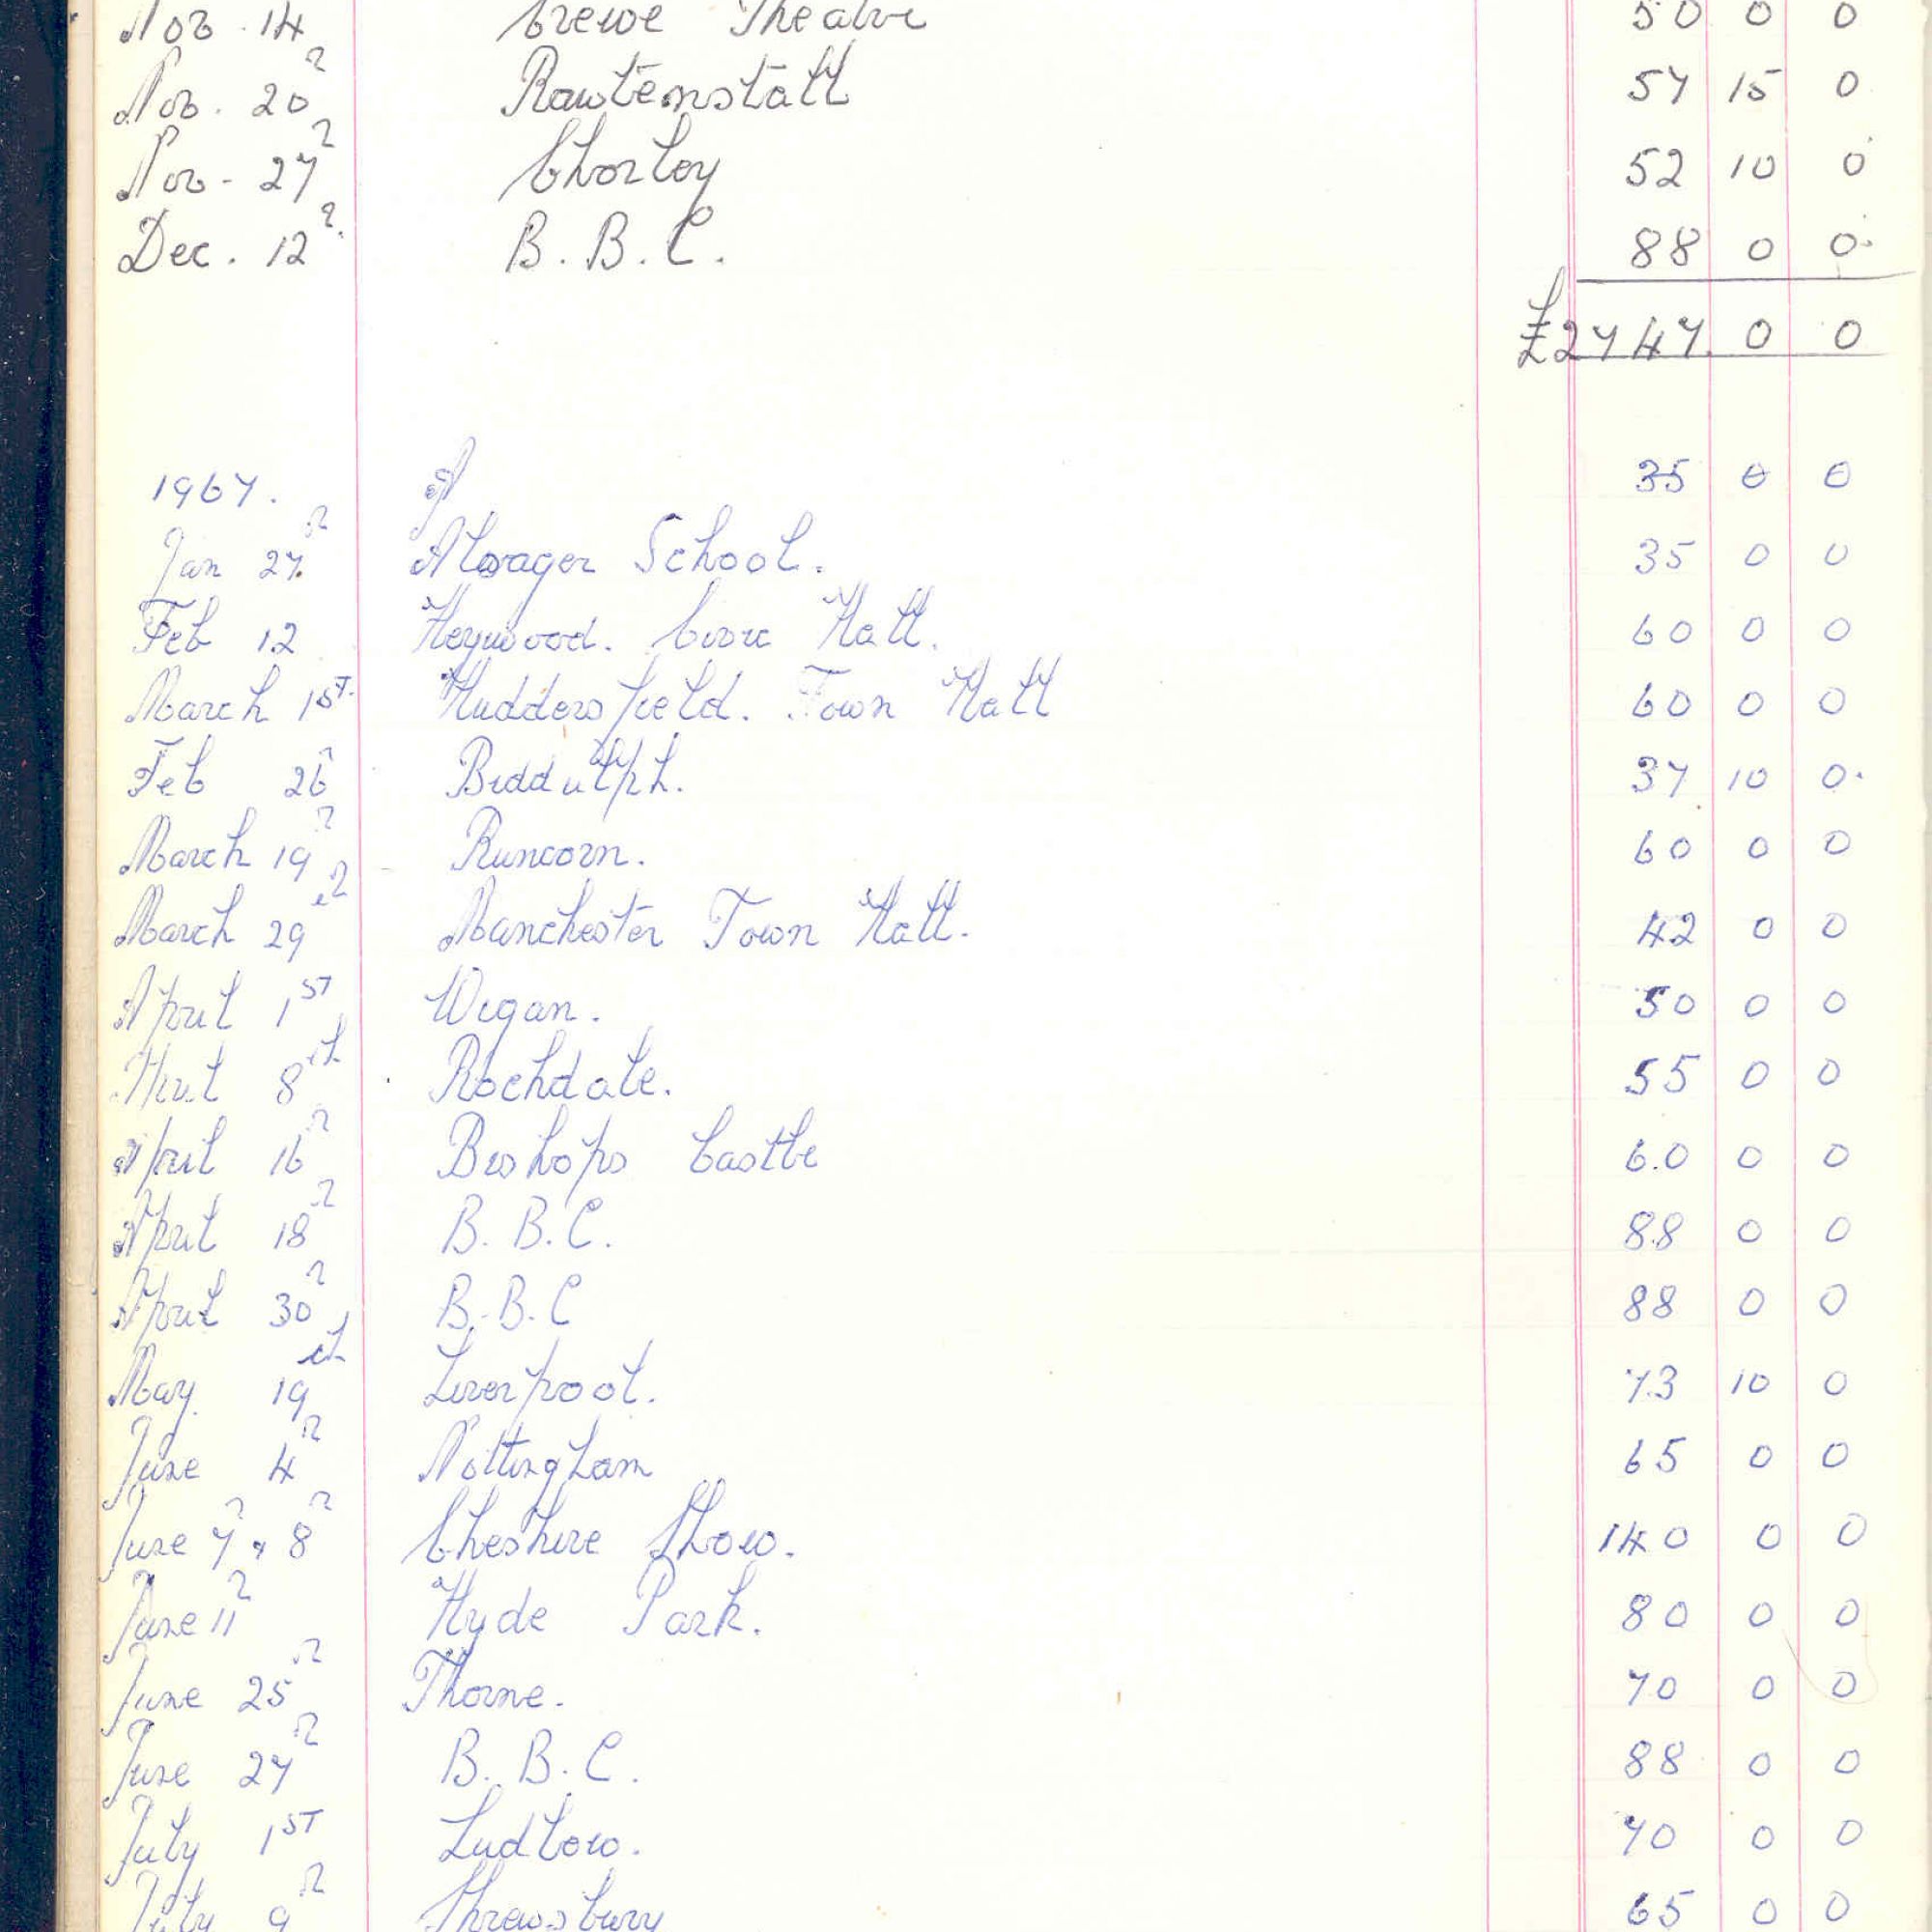 Nov. 14 Crewe Theatre 50 0 0
Nov. 20 Rawtenstall 57 15 0
Nov. 27 Chorley 52 10 0
Dec. 12 B.B.C. 88 0 0
£2747 0 0
1967. 35 0 0
Jan 27 Alsager School. 35 0 0
Feb 12 Heywood. Civic Hall. 60 0 0
March 1ST Huddersfield. Town Hall 60 0 0
Feb 26 Biddulph. 37 10 0
March 19 Runcorn. 60 0 0
March 29 Manchester Town Hall. 42 0 0
April 1ST Wigan. 50 0 0
April 8th Rochdale. 55 0 0
April 16 Bishops Castle 60 0 0
April 18 B.B.C. 88 0 0
April 30 B.B.C 88 0 0
May 19th Liverpool. 73 10 0
June 4 Nottingham 65 0 0
June 7 & 8 Cheshire Show. 140 0 0
June 11 Hyde Park. 80 0 0
June 25 Thorne. 70 0 0
June 27 B.B.C. 88 0 0
July 1ST Ludlow. 70 0 0
July 9 Shrewsbury 65 0 0